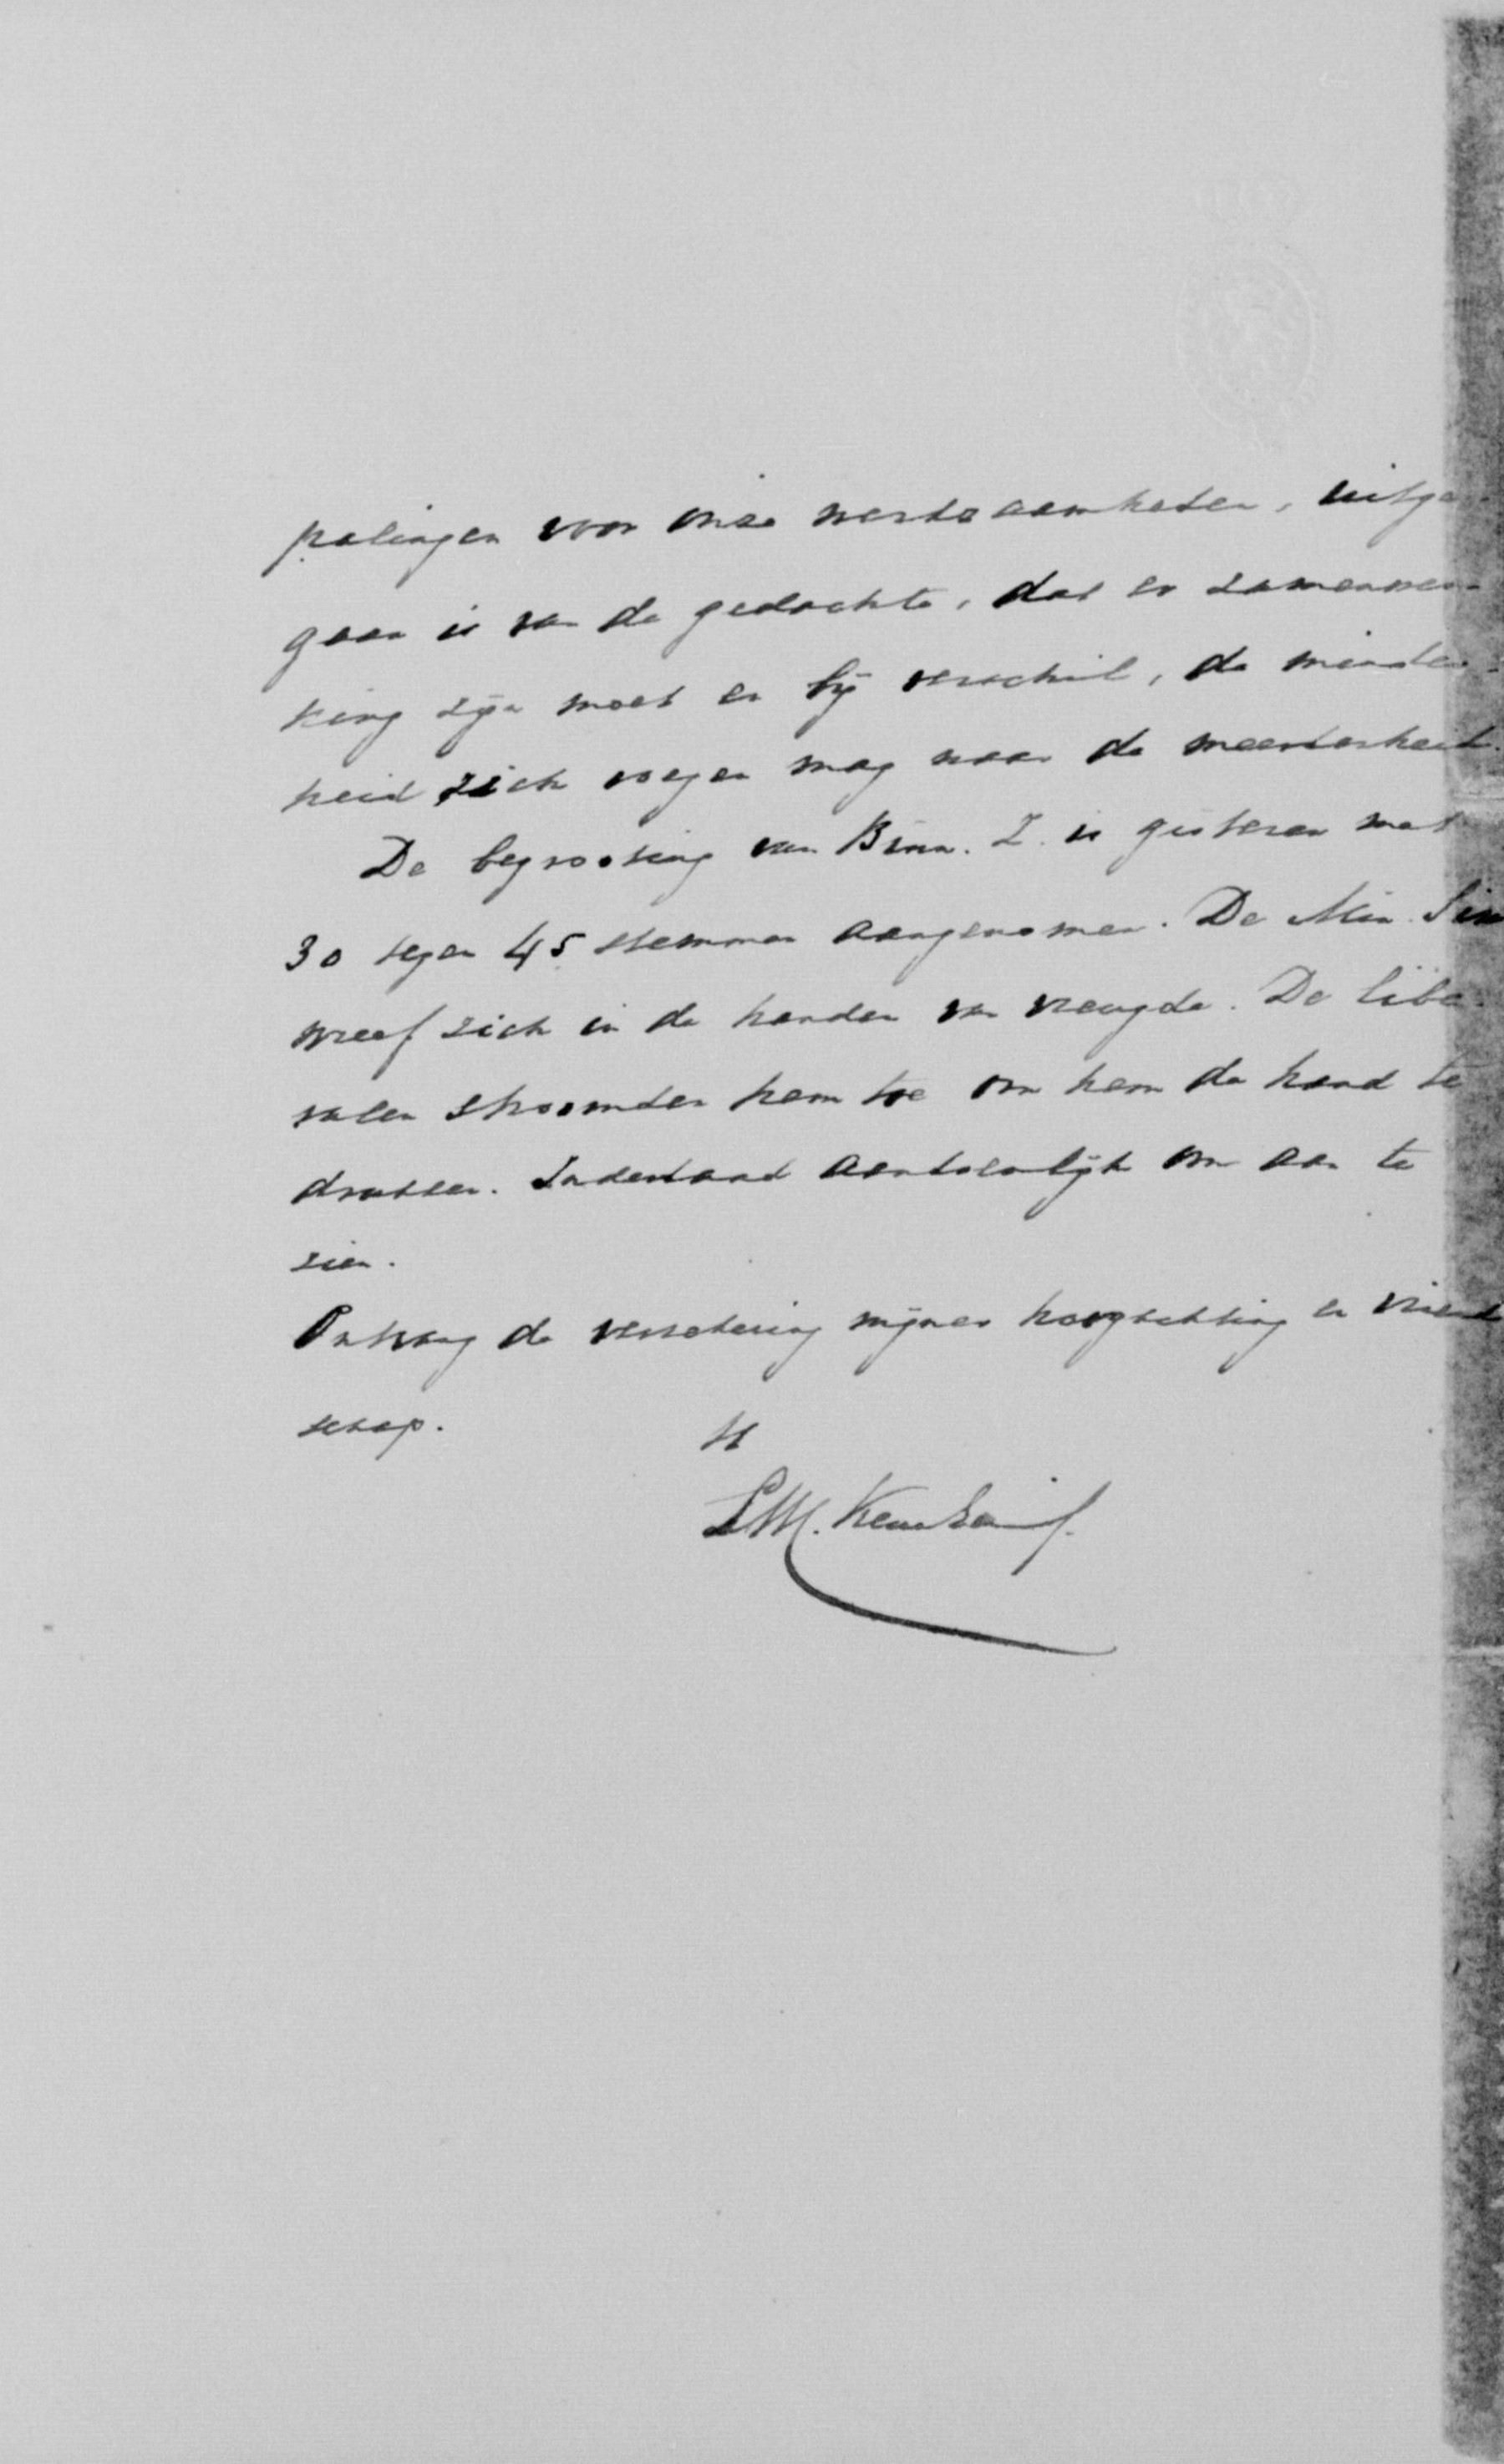 palingen voor onze werkzaamheden, uitge-
gaan is van de gedachte, dat er samenwer-
king zijn moet en bij verschil, de minder-
heid zich voegen mag naar de meerderheid.
De begrooting van Binn. Z. is gisteren met
30 tegen 45 stemmen aangenomen. De Min. Six
wreef zich in de handen van vreugde. De libe-
ralen stroomden hem toe om hem de hand te
drukken. Inderdaad aandoenlijk om aan te
zien.
Ontvang de verzekering mijner hoogachting en vriend
schap.
tt
LWC Keuchenius.